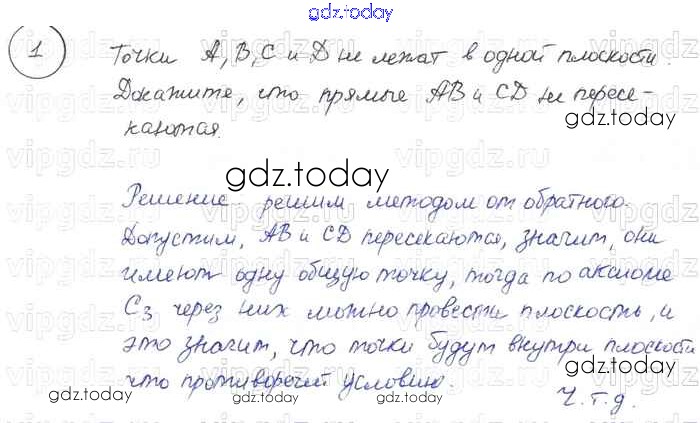 gdz.today
1 Точки A, B, C и D не лежат в одной плоскости.
Докажите, что прямые AB и CD не пересе-
каются.
gdz.today
gdz.today
Решение: решим методом от обратного.
Допустим, AB и CD пересекаются, значит, они
имеют одну общую точку, тогда по аксиоме
C3 через них можно провести плоскость, и
это значит, что точки будут внутри плоскости
что противоречит условию.
Ч.т.д.
gdz.today
gdz.today
gdz.today
gdz.today